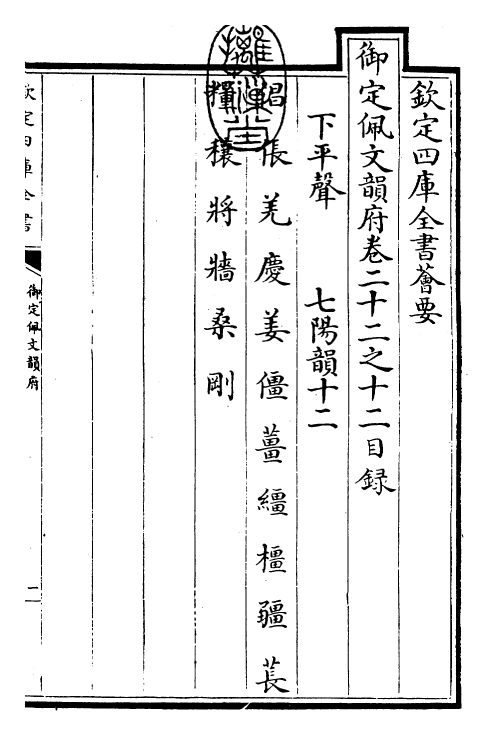 欽定四庫全書薈要
御定佩文韻府卷二十二之十二目録
下平聲　七陽韻十二
倡倀羌慶姜僵薑繮橿疆萇
糧穰將牆桑剛
欽定四庫全書
御定佩文韻府
一